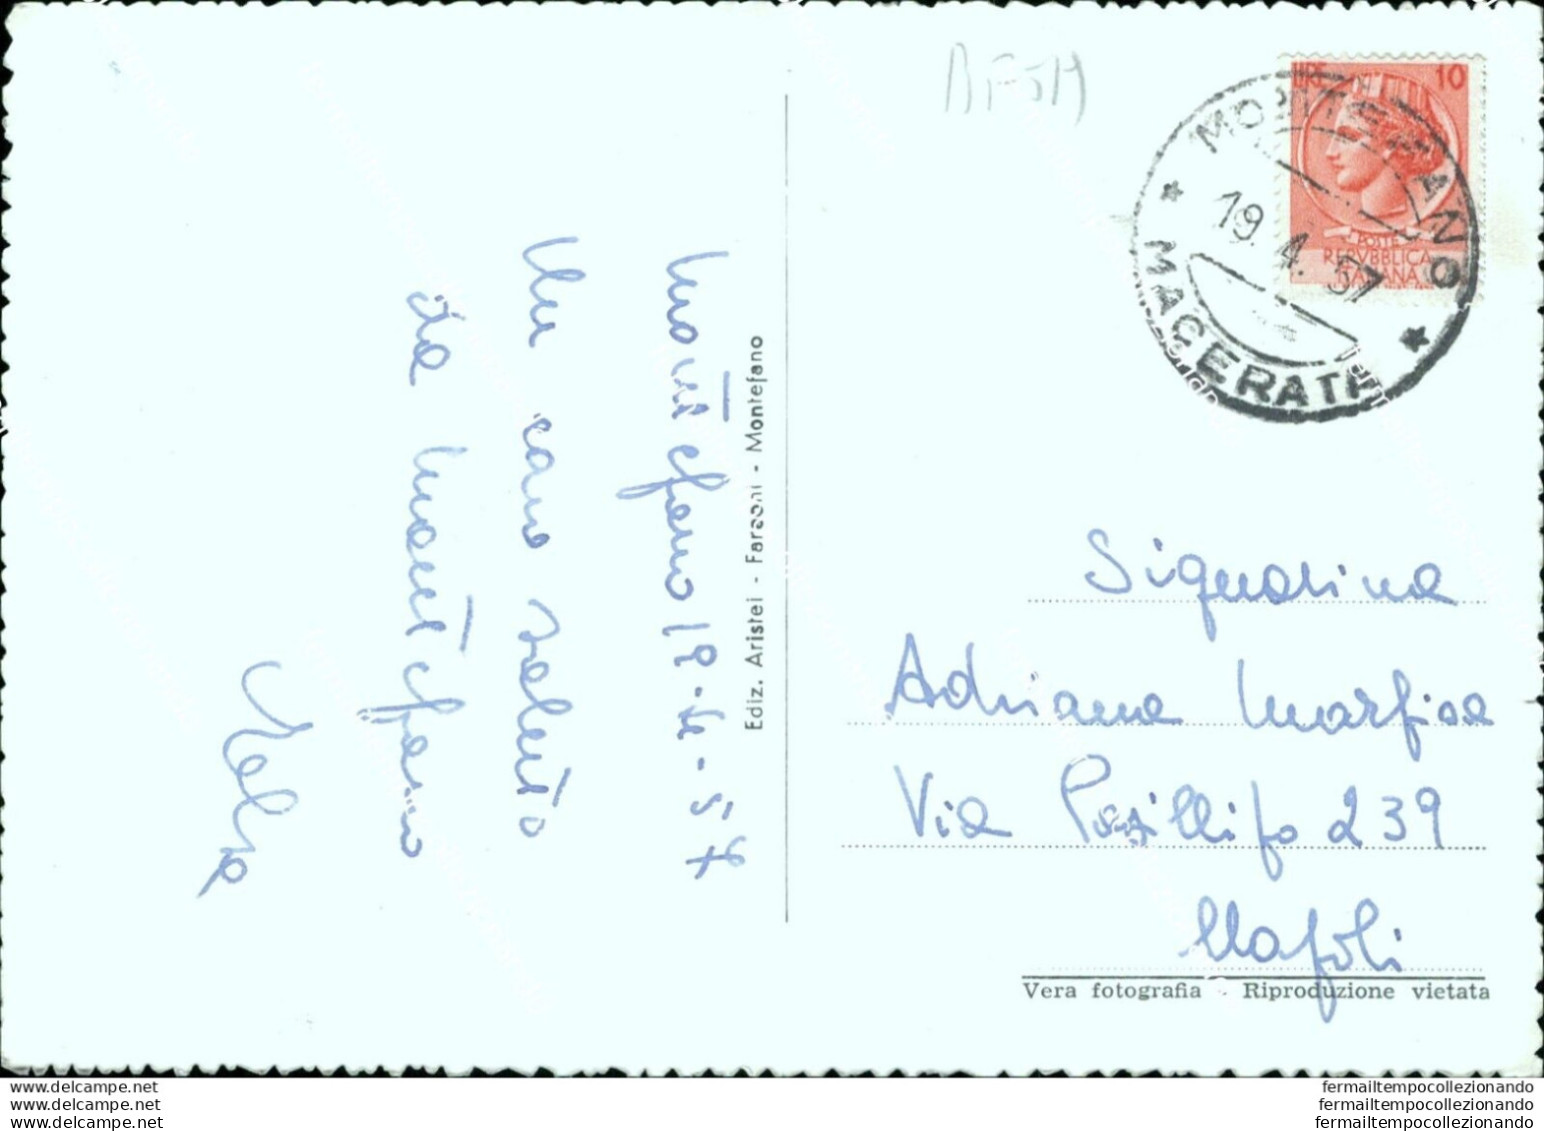 BF514
LIRE 10
POSTE
REPVBBLICA
ITALIANA
MONTEFANO
19.4.57
MACERATA
Montefano 19-4-57
Un caro saluto
da Montefano
Ediz. Aristei - Farsoni - Montefano
Signorina
Adriana Marfisa
Via Posillipo 239
Napoli
Vera fotografia - Riproduzione vietata
www.delcampe.net
www.delcampe.net
www.delcampe.net
fermailtempocollezionando
fermailtempocollezionando
fermailtempocollezionando